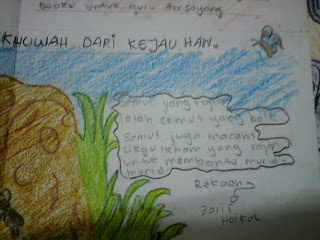 booku untuk guru tersayang
KHUIWAH DARI KEJAUHAN.
Semut yang rajin
ialah semut yang baik
Semut juga macam
cikgu ilham yang rajin
untuk membantu murid
murid
Rekaan
Zarif
Haikal